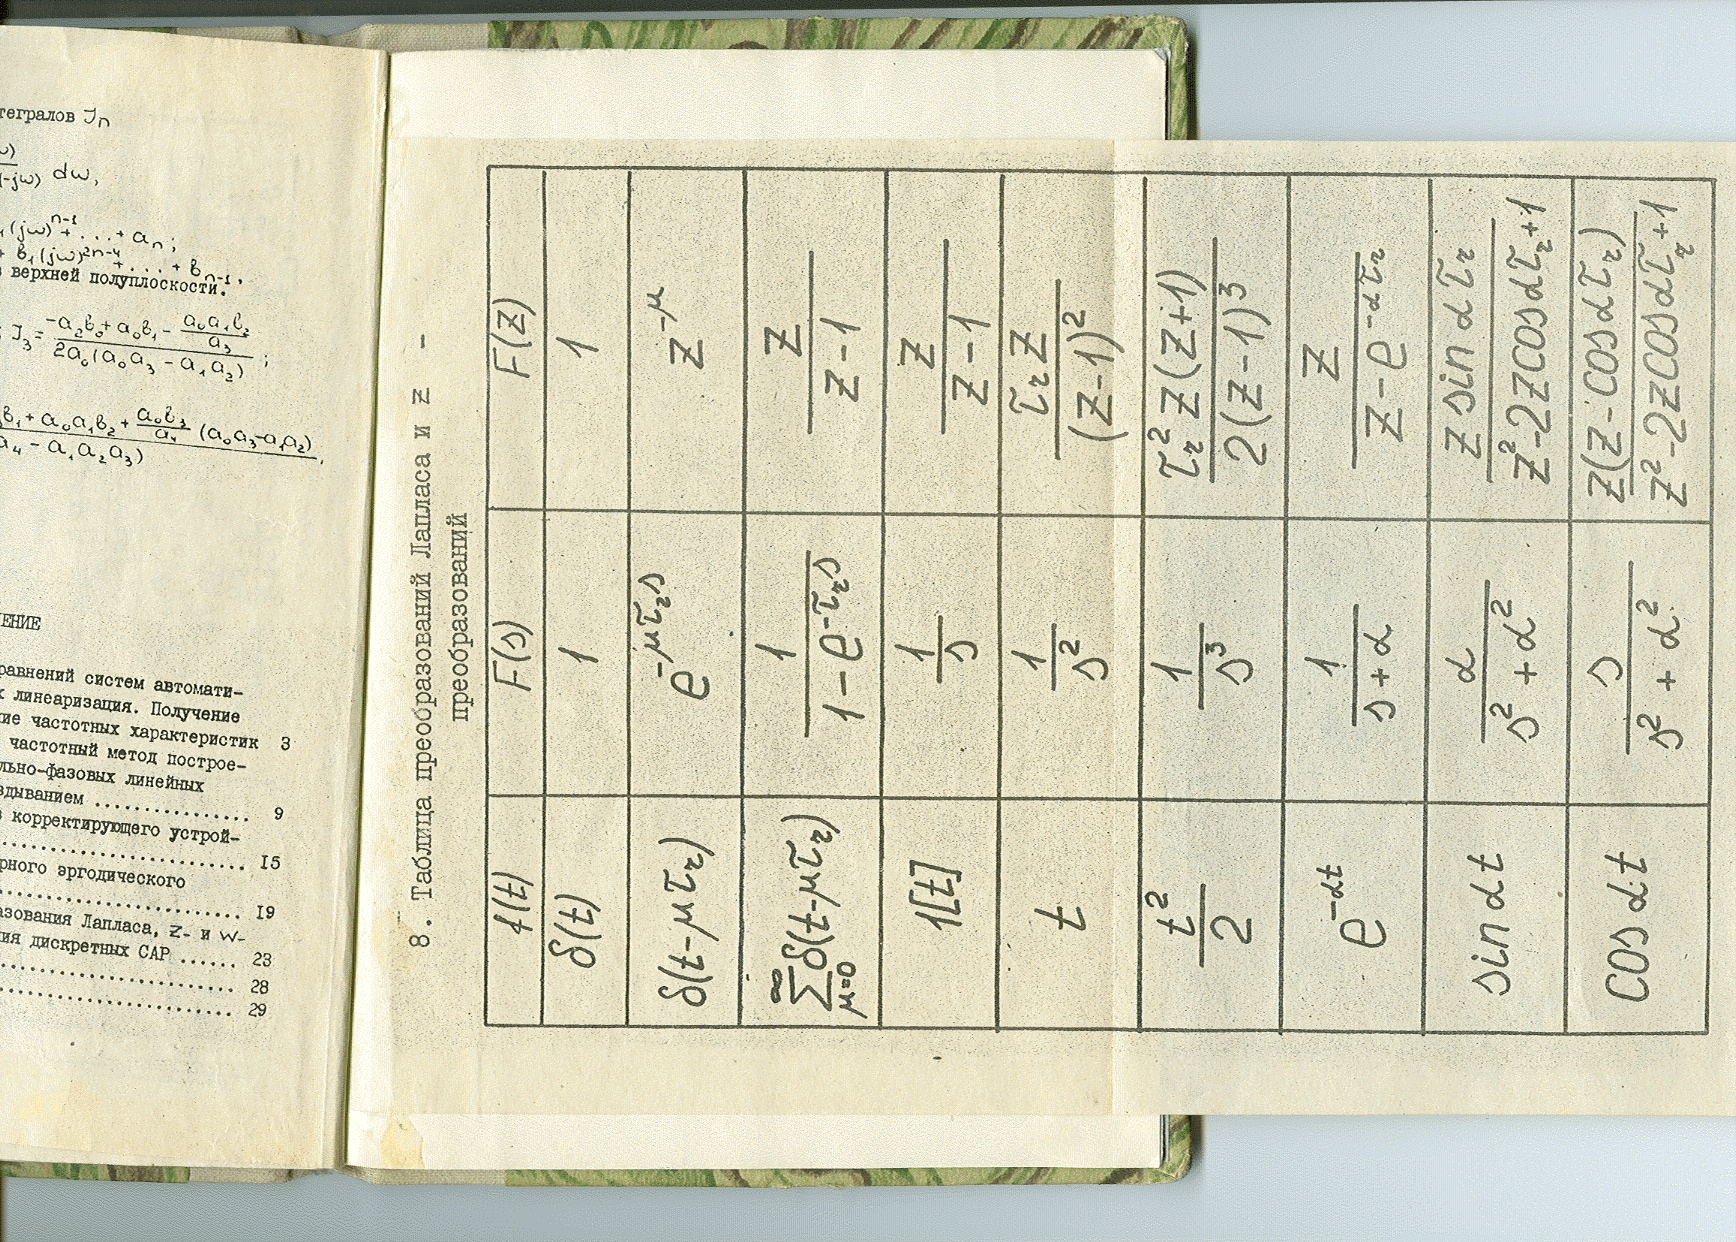 тегралов Jn
ω)
(-jω) dω,
(jω)^{n-1} + ... + a_n;
+ b_1(jω)^{2n-4} + ... + b_{n-1}.
в верхней полуплоскости.
J_3 = \frac{-a_2b_0 + a_0b_1 - \frac{a_0a_1b_2}{a_3}}{2a_0(a_0a_3 - a_1a_2)};
b_1 + a_0a_1b_2 + \frac{a_0b_3}{a_4}(a_0a_3 - a_1a_2)
a_4 - a_1a_2a_3) ,
ЕНИЕ
равнений систем автомати-
х линеаризация. Получение
ие частотных характеристик 3
частотный метод построе-
льно-фазовых линейных
здыванием .............. 9
з корректирующего устрой-
........................ 15
рного эргодического
........................ 19
азования Лапласа, z- и w-
ия дискретных САР ...... 23
........................ 28
........................ 29
8. Таблица преобразований Лапласа и z -
преобразований
f(t) F(s) F(z)
δ(t) 1 1
δ(t-μτ_r) e^{-μτ_r s} z^{-μ}
\sum_{μ=0}^{∞} δ(t-μτ_r) \frac{1}{1-e^{-τ_r s}} \frac{z}{z-1}
1[t] \frac{1}{s} \frac{z}{z-1}
t \frac{1}{s^2} \frac{τ_r z}{(z-1)^2}
\frac{t^2}{2} \frac{1}{s^3} \frac{τ_r^2 z(z+1)}{2(z-1)^3}
e^{-αt} \frac{1}{s+α} \frac{z}{z-e^{-ατ_r}}
sin αt \frac{α}{s^2+α^2} \frac{z sin ατ_r}{z^2-2z cos ατ_r+1}
cos αt \frac{s}{s^2+α^2} \frac{z(z-cos ατ_r)}{z^2-2z cos ατ_r+1}